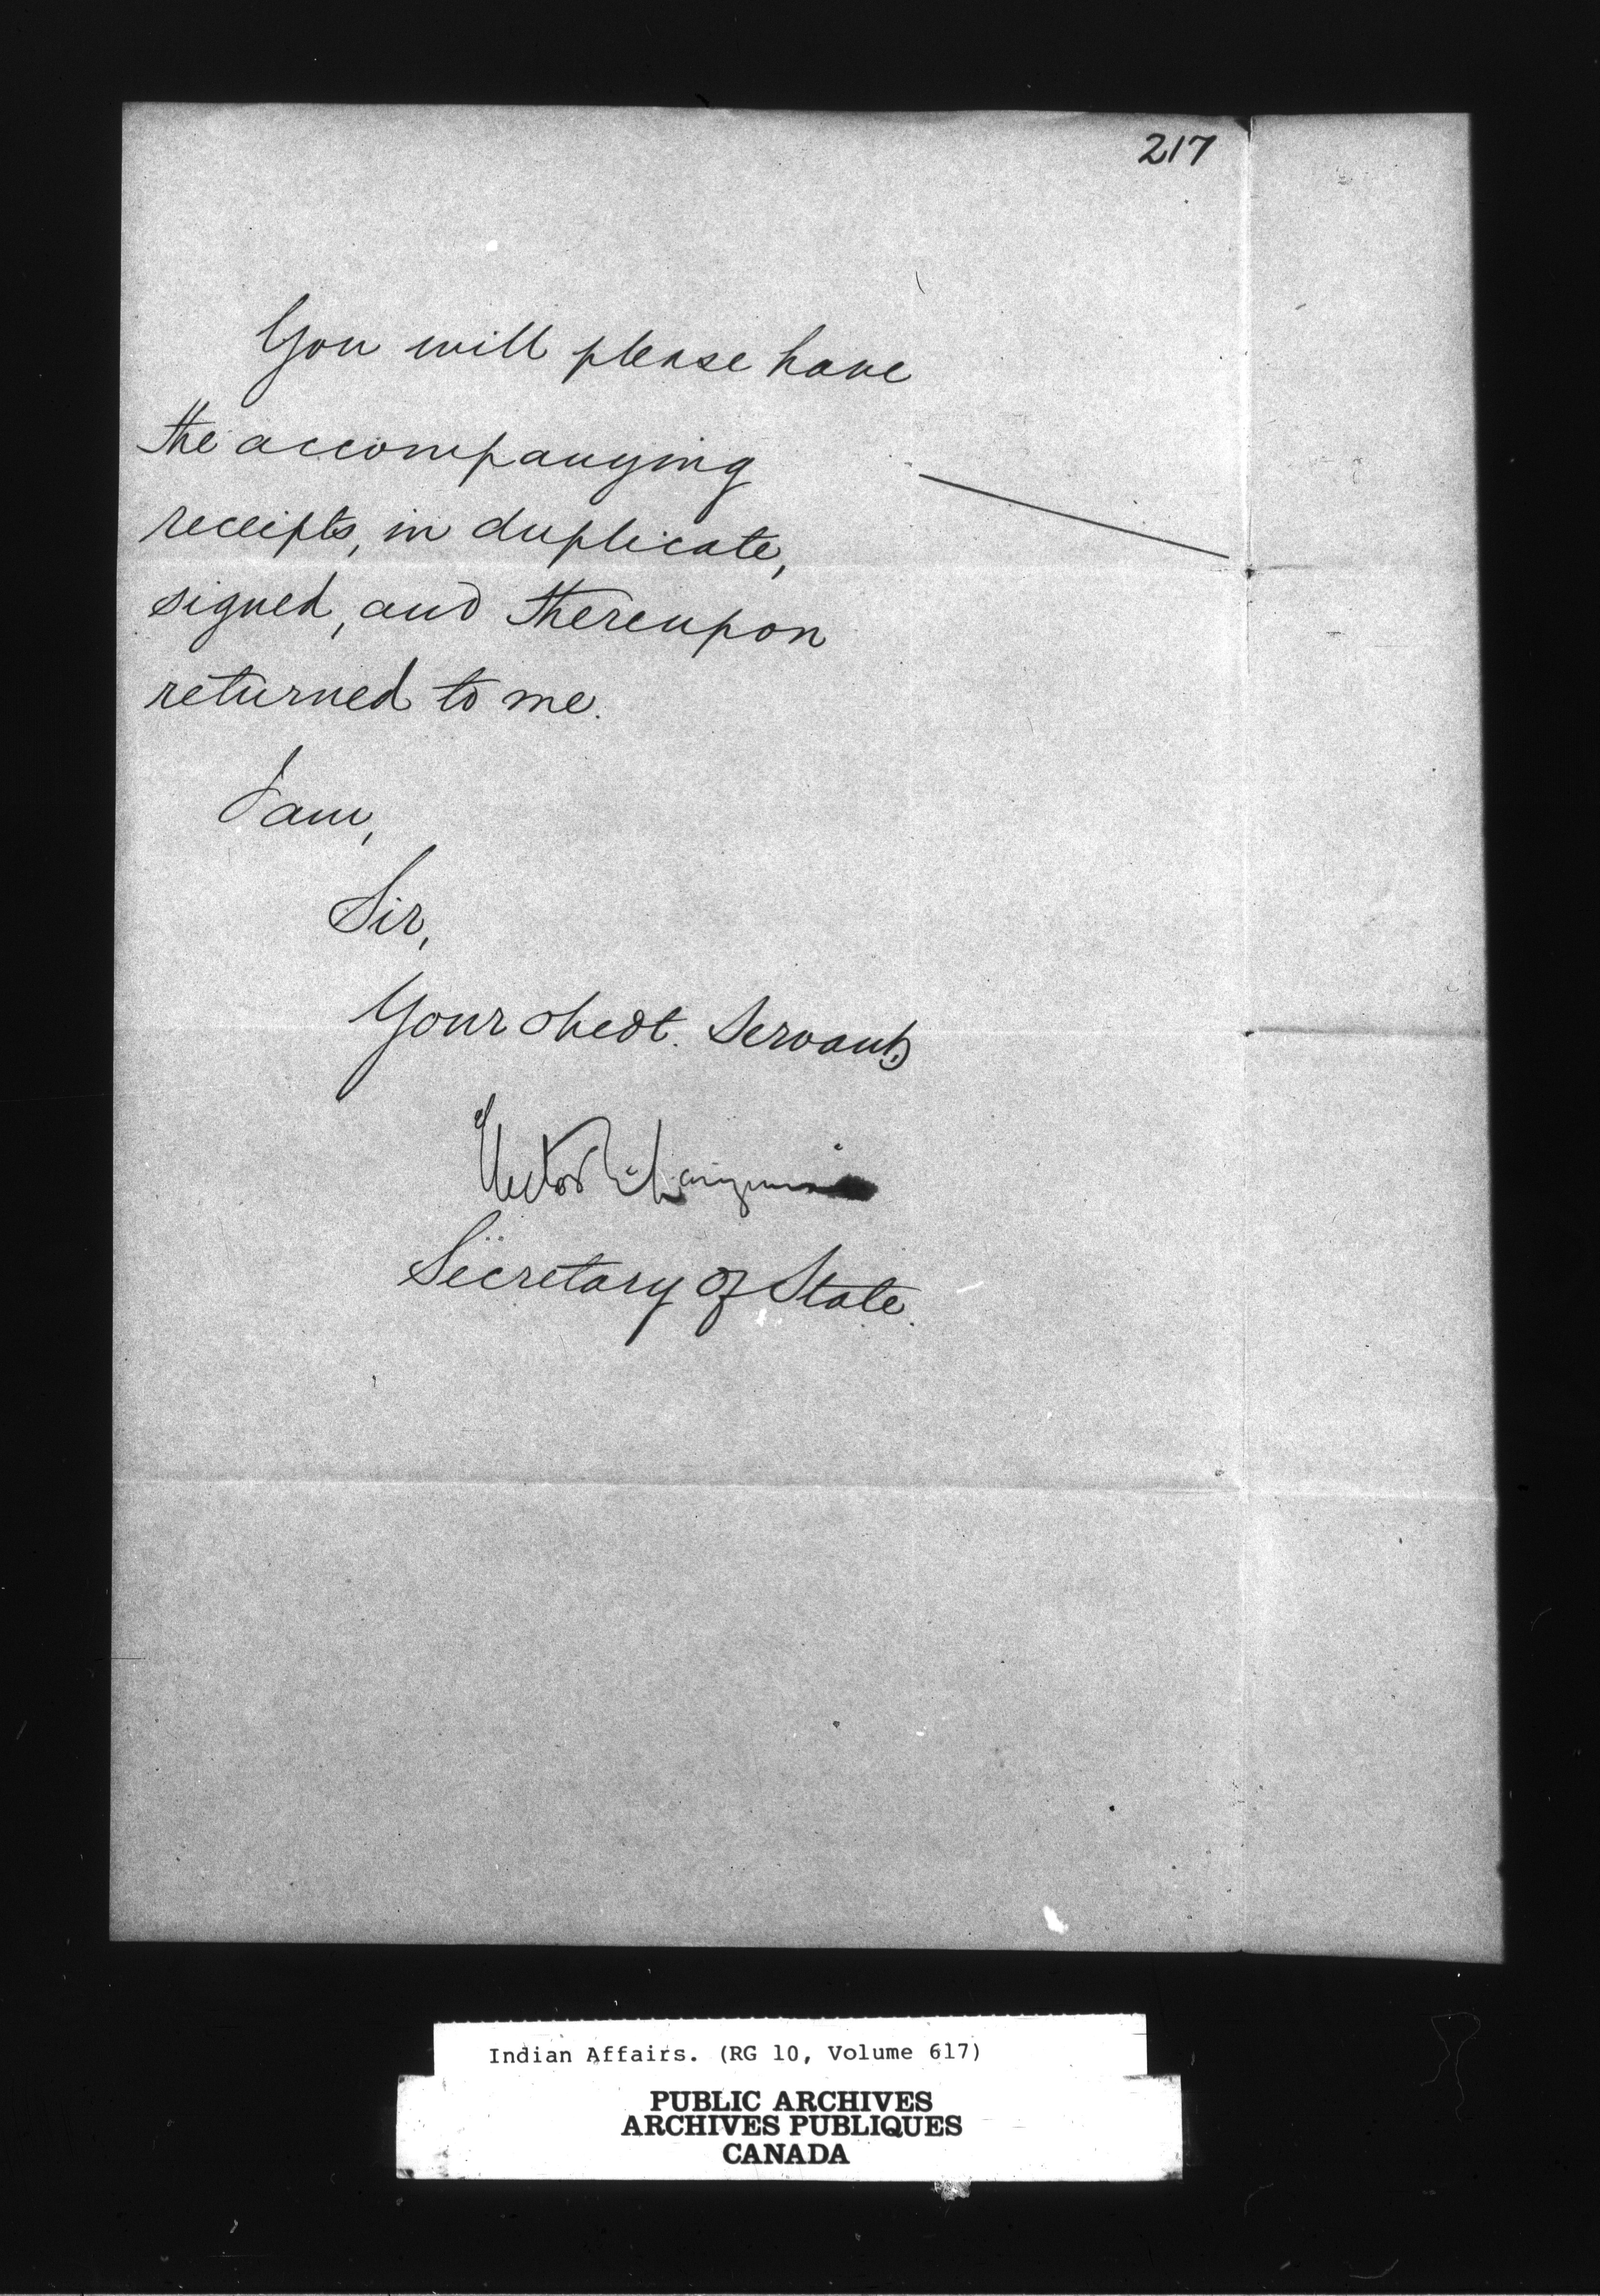 217
You will please have
the accompanying
receipts, in duplicate,
signed, and thereupon
returned to me.
I am,
Sir,
Your obedt. Servant,
Hector L. Langevin
Secretary of State.
Indian Affairs. (RG 10, Volume 617)
PUBLIC ARCHIVES
ARCHIVES PUBLIQUES
CANADA